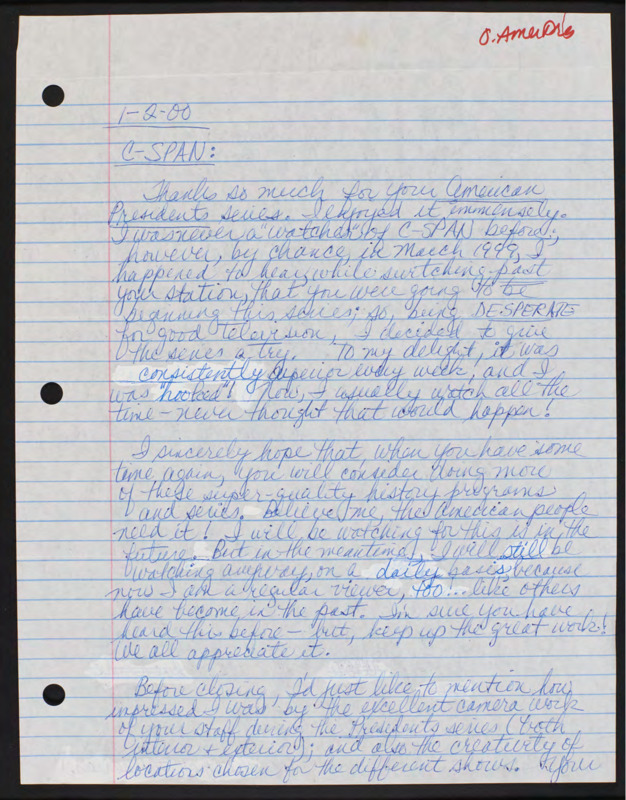 1-2-00
C-SPAN:
Thanks so much for your American
Presidents series. I enjoyed it immensely.
I was never a "watcher" of C-SPAN before;
however, by chance, in March 1999, I
happened to hear, while switching past
your station, that you were going to be
beginning this series; so, being DESPERATE
for good television, I decided to give
the series a try. To my delight, it was
consistently superior every week, and I
was "hooked"! Now, I usually watch all the
time - never thought that would happen!
I sincerely hope that, when you have some
time again, you will consider doing more
of these super-quality history programs
and series. Believe me, the American people
need it! I will be watching for this in the
future. But in the meantime, I will still be
watching anyway, on a daily basis because
now I am a regular viewer, too!.. like others
have become in the past. I'm sure you have
heard this before - but, keep up the great work!
We all appreciate it.
Before closing, I'd just like to mention how
impressed I was by the excellent camera work
of your staff during the Presidents series (both
interior + exterior); and also the creativity of
locations chosen for the different shows. Your